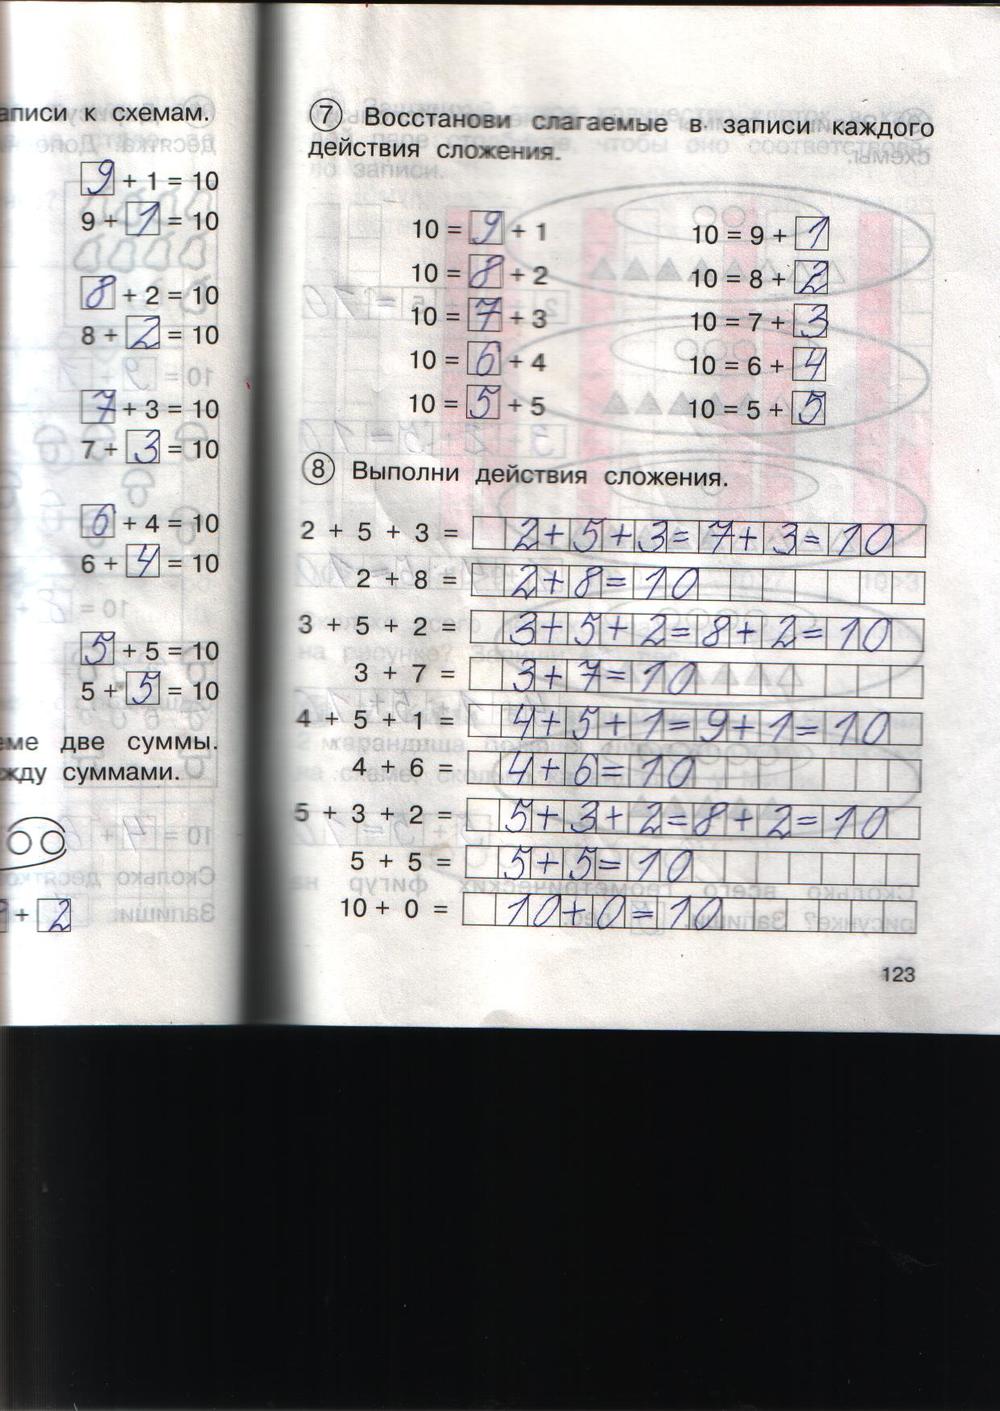 аписи к схемам.
9 + 1 = 10
9 + 1 = 10
8 + 2 = 10
8 + 2 = 10
7 + 3 = 10
7 + 3 = 10
6 + 4 = 10
6 + 4 = 10
5 + 5 = 10
5 + 5 = 10
еме две суммы.
жду суммами.
+ 2
7 Восстанови слагаемые в записи каждого
действия сложения.
10 = 9 + 1 10 = 9 + 1
10 = 8 + 2 10 = 8 + 2
10 = 7 + 3 10 = 7 + 3
10 = 6 + 4 10 = 6 + 4
10 = 5 + 5 10 = 5 + 5
8 Выполни действия сложения.
2 + 5 + 3 = 2+5+3=7+3=10
2 + 8 = 2+8=10
3 + 5 + 2 = 3+5+2=8+2=10
3 + 7 = 3+7=10
4 + 5 + 1 = 4+5+1=9+1=10
4 + 6 = 4+6=10
5 + 3 + 2 = 5+3+2=8+2=10
5 + 5 = 5+5=10
10 + 0 = 10+0=10
123